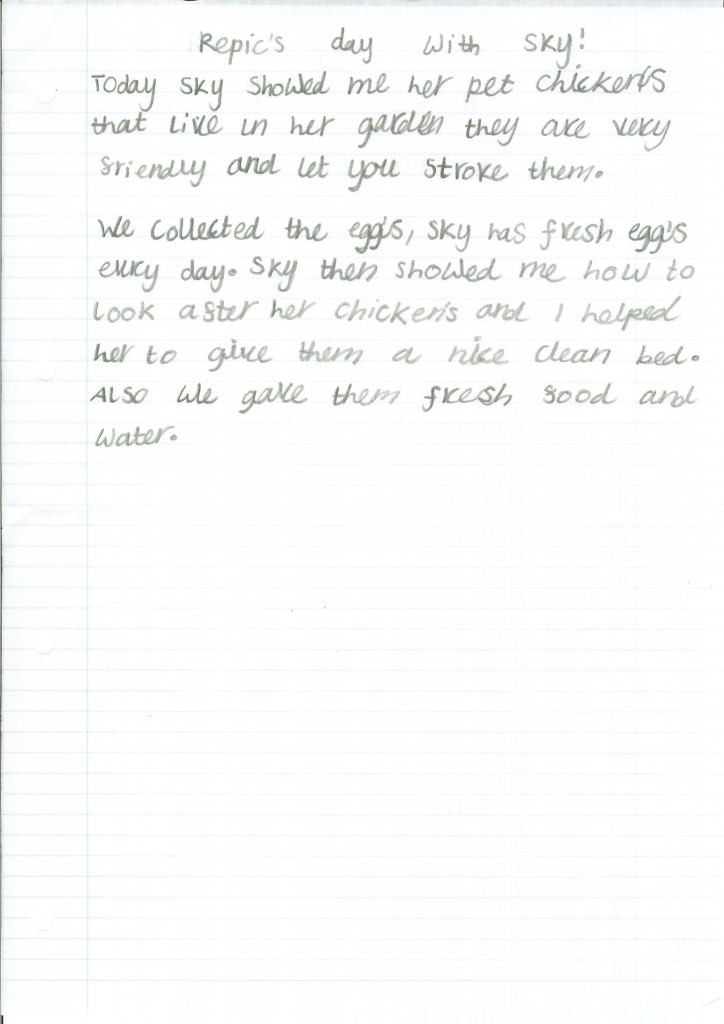 Repic's day with Sky!
Today Sky showed me her pet chicken's
that live in her garden they are very
friendly and let you stroke them.
We collected the egg's, Sky has fresh egg's
every day. Sky then showed me how to
look after her chicken's and I helped
her to give them a nice clean bed.
Also we gave them fresh food and
water.